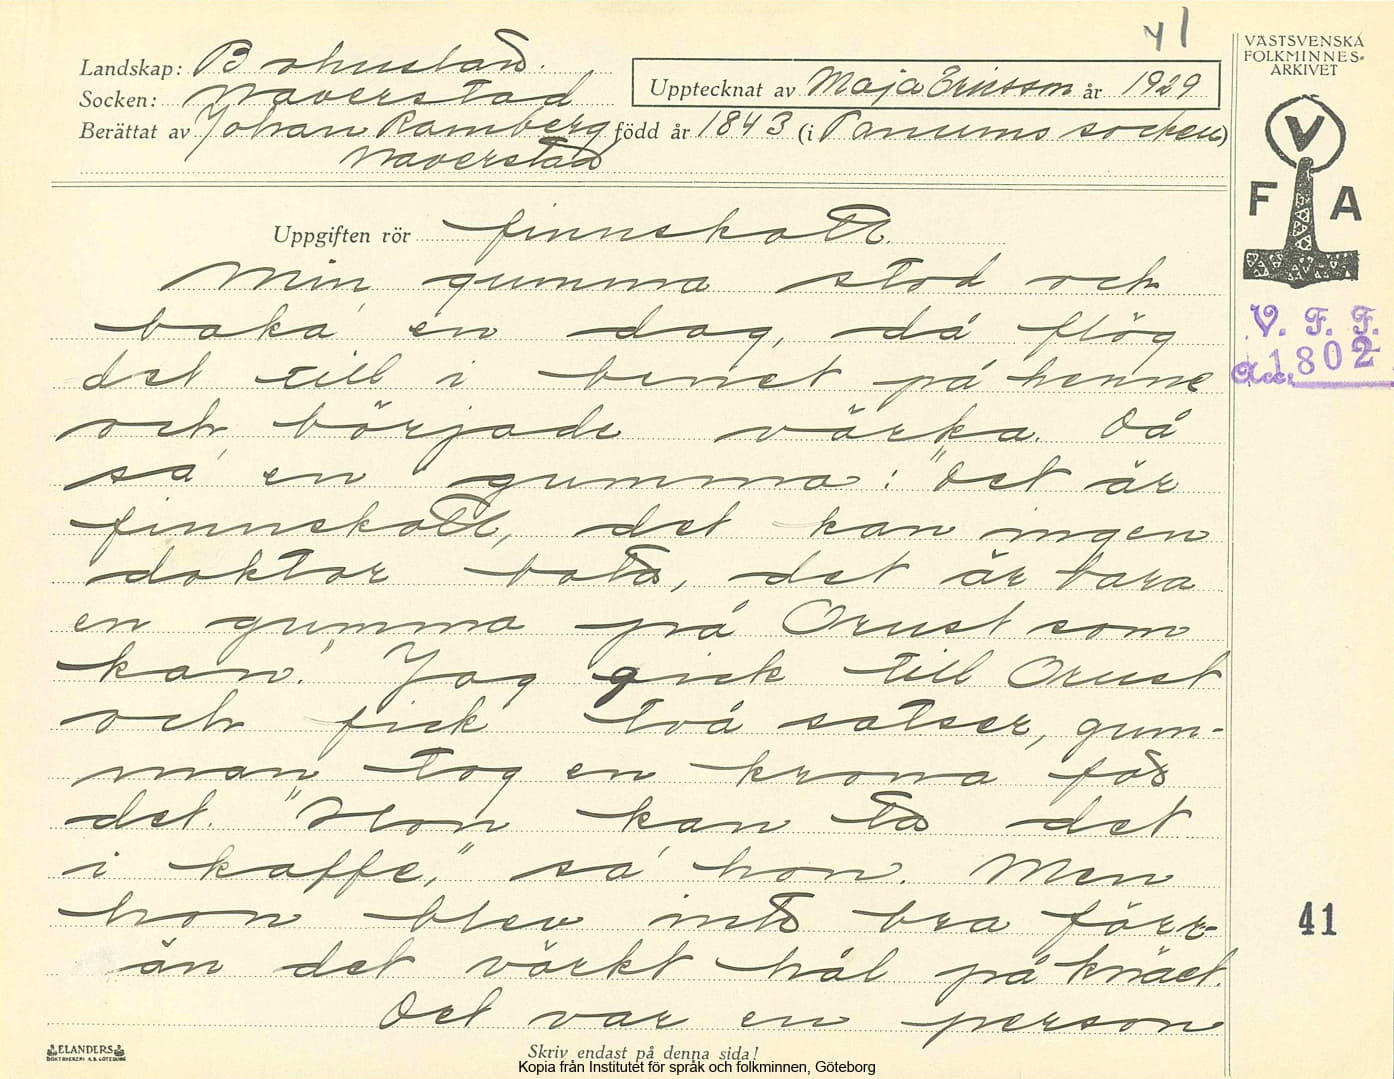 41
VÄSTSVENSKA
FOLKMINNES-
ARKIVET
Landskap: Bohuslän.
Socken: Naverstad
Upptecknat av Maja Ericsson år 1929
Berättat av Johan Ramberg, född år 1843 (i Tanums socken)
Naverstad
V
F A
Uppgiften rör finnskott.
Min gumma stod och
baka' en dag, då flög
det till i benet på henne
och började värka. Då
sa' en gumma: "Det är
finnskott, det kan ingen
doktor bota, det är bara
en gumma på Orust som
kan." Jag gick till Orust
och fick två satser, gum-
man tog en krona för
det. "Hon kan ta det
i kaffe," sa' hon. Men
hon blev inte bra förr-
än det värkt hål på knäet.
Det var en person
V. F. F.
Acc. 1802
41
ELANDERS
BOKTRYCKERI A.B. GÖTEBORG
Skriv endast på denna sida!
Kopia från Institutet för språk och folkminnen, Göteborg